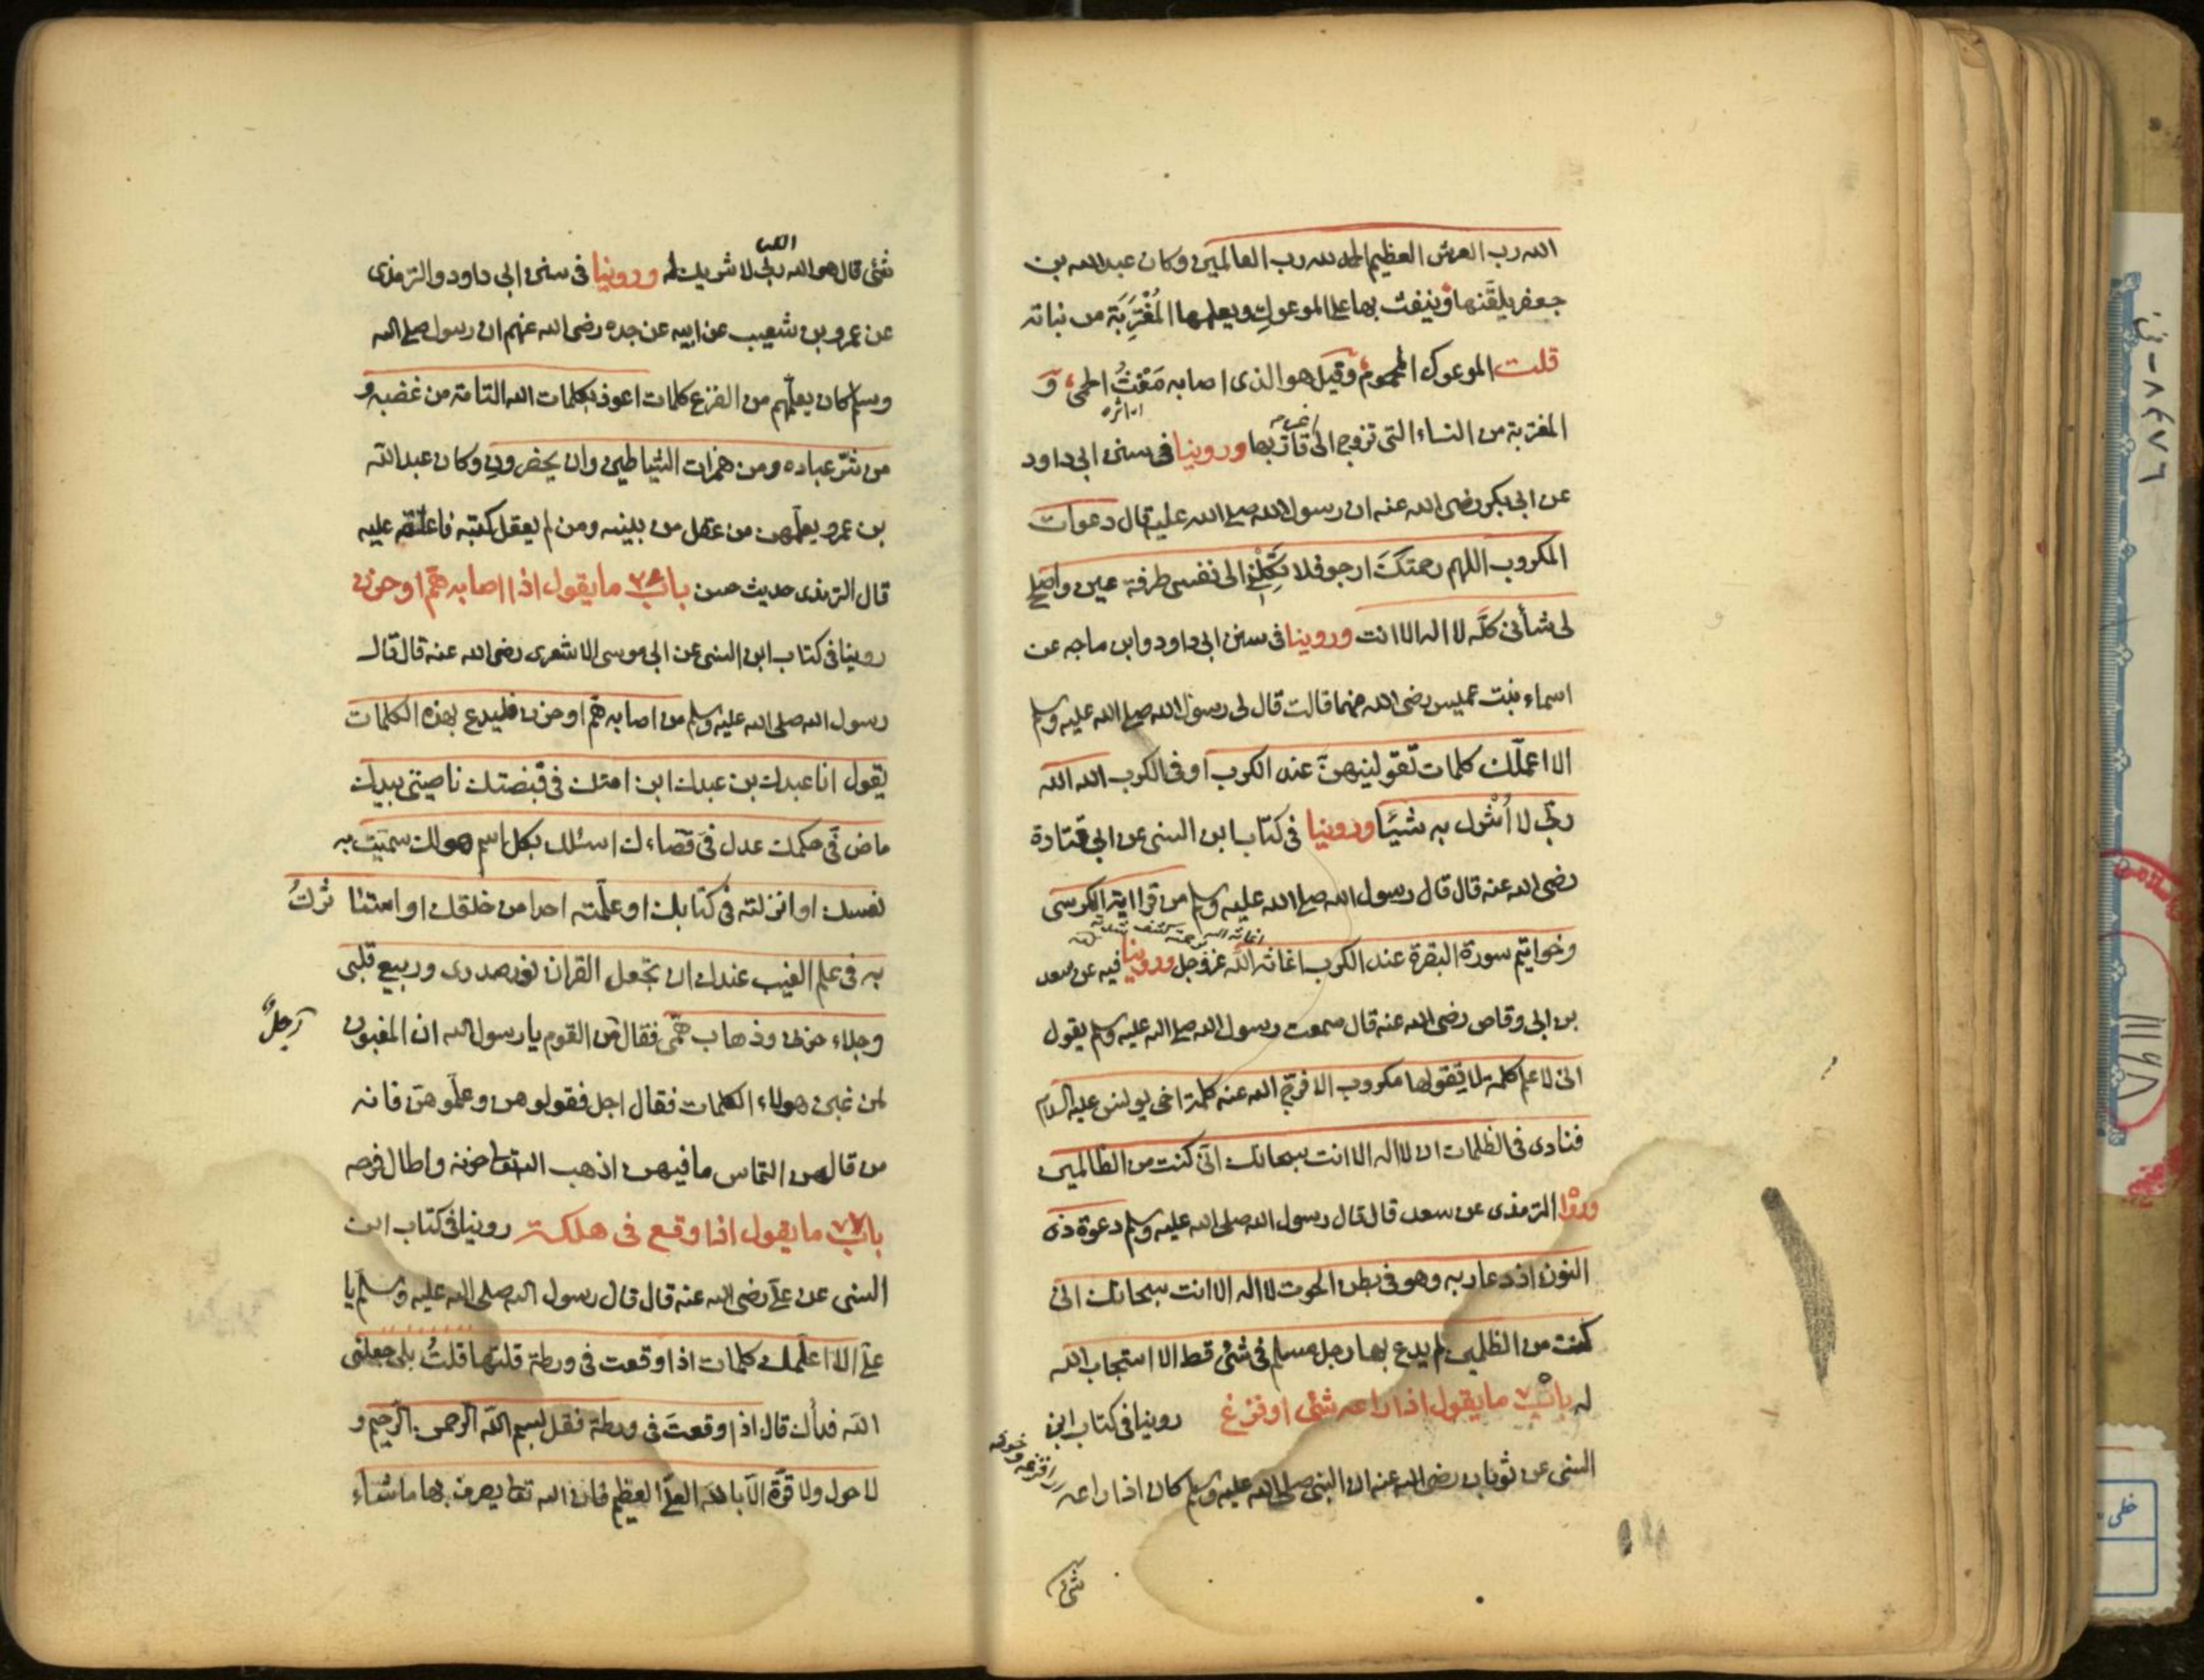 الله رب العرش العظيم الحمد لله رب العالمين وكان عبد الله بن
جعفر يلقنها وينفث بها على الموعوك ويعلمها المُغْتَرِبَة من نباته
قلت الموعوك المحموم وقيل هو الذى اصابه مَغْثُ الحمى و
المغتربة من النساء التى تزوج الى غير اقاربها وروينا فى سنن ابى داود
عن ابى بكر رضى الله عنه ان رسول الله صلى الله عليه قال دعوات
المكروب اللهم رحمتك ارجو فلا تَكِلْنى الى نفسى طرفة عين واصلح
لى شأنى كلّه لا اله الا انت وروينا فى سنن ابى داود وابن ماجه عن
اسماء بنت عميس رضى الله عنهما قالت قال لى رسول الله صلى الله عليه وسلم
الا اعلّمك كلمات تقولينهنّ عند الكرب او فى الكرب الله الله
ربّى لا أُشْرِك به شيئًا وروينا فى كتاب ابن السنى عن ابى قتادة
رضى الله عنه قال قال رسول الله صلى الله عليه وسلم من قرا اية الكرسى
وخواتيم سورة البقرة عند الكرب اغاثه الله عز وجل وروينا فيه عن سعد
بن ابى وقاص رضى الله عنه قال سمعت رسول الله صلى الله عليه وسلم يقول
انى لاعلم كلمة لا يقولها مكروب الا فرج الله عنه كلمة اخى يونس عليه السلام
فنادى فى الظلمات ان لا اله الا انت سبحانك انّى كنت من الظالمين
وروا الترمذى عن سعد قال قال رسول الله صلى الله عليه وسلم دعوة ذى
النون اذ دعا ربه وهو فى بطن الحوت لا اله الا انت سبحانك انى
كنت من الظلمين لم يدع بها رجل مسلم فى شئ قط الا استجاب الله
له باب ما يقول اذا راعه شئ او فزع روينا فى كتاب ابن
السنى عن ثوبان رضى الله عنه ان النبى صلى الله عليه وسلم كان اذا راعه
شئ
شئ قال هو الله الله ربى لا شريك له وروينا فى سنن ابى داود والترمذى
عن عمرو بن شعيب عن ابيه عن جده رضى الله عنهم ان رسول صلى الله
وسلم كان يعلّمهم من الفزع كلمات اعوذ بكلمات الله التامة من غضبه و
من شرّ عباده ومن همزات الشياطين وان يحضرون وكان عبد الله
بن عمرو يعلّمهن من عقل من بنيه ومن لم يعقل كتبه فاعلقه عليه
قال الترمذى حديث حسن باب ما يقول اذا اصابه همّ او حزن
روينا فى كتاب ابن السنى عن ابى موسى الاشعرى رضى الله عنه قال قال
رسول الله صلى الله عليه وسلم من اصابه همّ او حزن فليدع بهذه الكلمات
يقول انا عبدك بن عبدك ابن امتك فى قبضتك ناصيتى بيدك
ماض فىّ حكمك عدل فىّ قضاءك اسئلك بكل اسم هو لك سميت به
نفسك او انزلته فى كتابك او علّمته احدا من خلقك او استأثرت
به فى علم الغيب عندك ان تجعل القران نور صدرى وربيع قلبى
وجلاء حزنى وذهاب همّى فقال من القوم يا رسول الله ان المغبون
رجلٌ
لمن غبن هولاء الكلمات فقال اجل فقولوهن وعلّموهنّ فانه
من قالهن التماس ما فيهن اذهب الله تعا حزنه واطال فرحه
باب ما يقول اذا وقع فى هلكة روينا فى كتاب ابن
السنى عن علىّ رضى الله عنه قال قال رسول الله صلى الله عليه وسلّم يا
علىّ الا اعلّمك كلمات اذا وقعت فى ورطة قلتها قلتُ بلى جعلنى
الله فداك قال اذا وقعتَ فى ورطة فقل بسم الله الرحمن الرّحيم و
لا حول ولا قوّة الّا بالله العلىّ العظيم فان الله تعا يصرف بها ما شاء